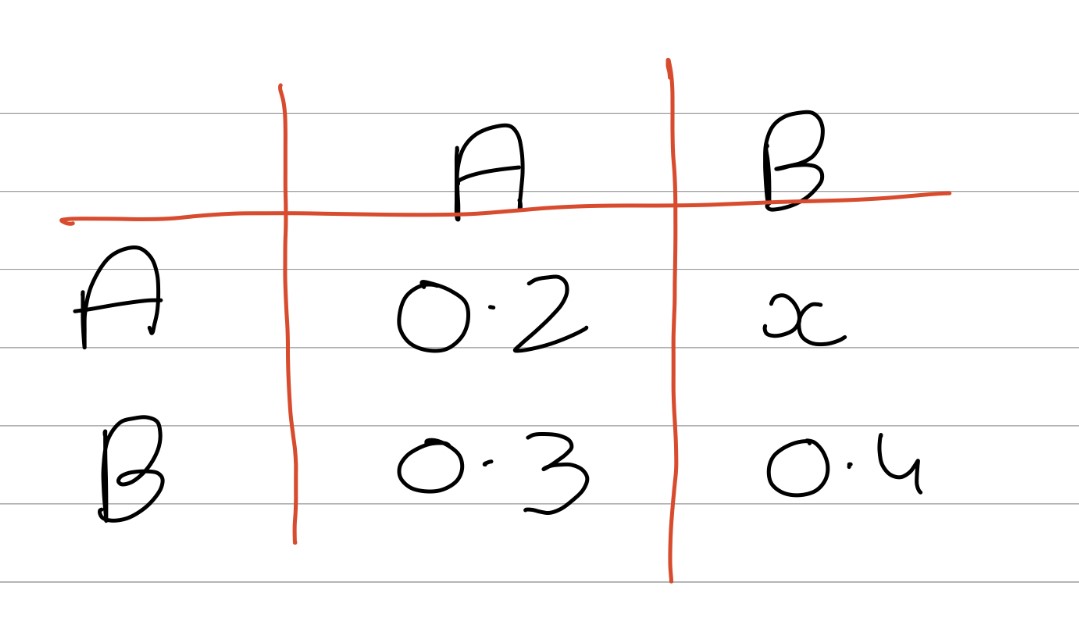 A B
A 0.2 x
B 0.3 0.4